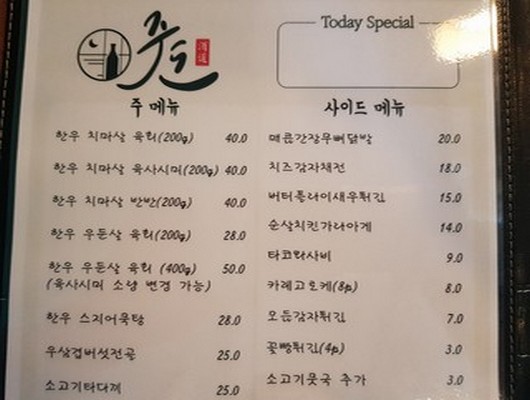 주도
酒道
Today Special
주 메뉴
한우 치마살 육회(200g) 40.0
한우 치마살 육사시미(200g) 40.0
한우 치마살 반반(200g) 40.0
한우 우둔살 육회(200g) 28.0
한우 우둔살 육회 (400g) 50.0
(육사시미 소량 변경 가능)
한우 스지어묵탕 28.0
우삼겹버섯전골 25.0
소고기타다끼 25.0
사이드 메뉴
매콤간장무뼈닭발 20.0
치즈감자채전 18.0
버터플라이새우튀김 15.0
순살치킨가라아게 14.0
타코와사비 9.0
카레고로케(8p) 8.0
모듬감자튀김 7.0
꽃빵튀김(4p) 3.0
소고기뭇국 추가 3.0